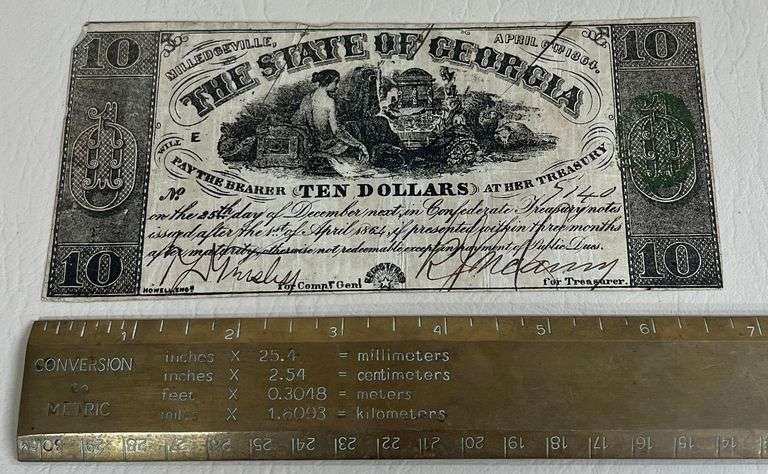 10 MILLEDGEVILLE, APRIL 6TH 1864. 10
THE STATE OF GEORGIA
E
WILL
PAY THE BEARER TEN DOLLARS AT HER TREASURY
No
on the 25th day of December next, in Confederate Treasury notes
issued after the 1st of April 1864, if presented within three months
after maturity, otherwise not redeemable except in payment of Public Dues.
10 10
HOWELL, ENGR. for Compt Genl REGISTERED for Treasurer.
1 2 3 4 5 6 7
CONVERSION to METRIC
inches X 25.4 = millimeters
inches X 2.54 = centimeters
feet X 0.3048 = meters
miles X 1.6093 = kilometers
30 29 28 27 26 25 24 23 22 21 20 19 18 17 16 15 14